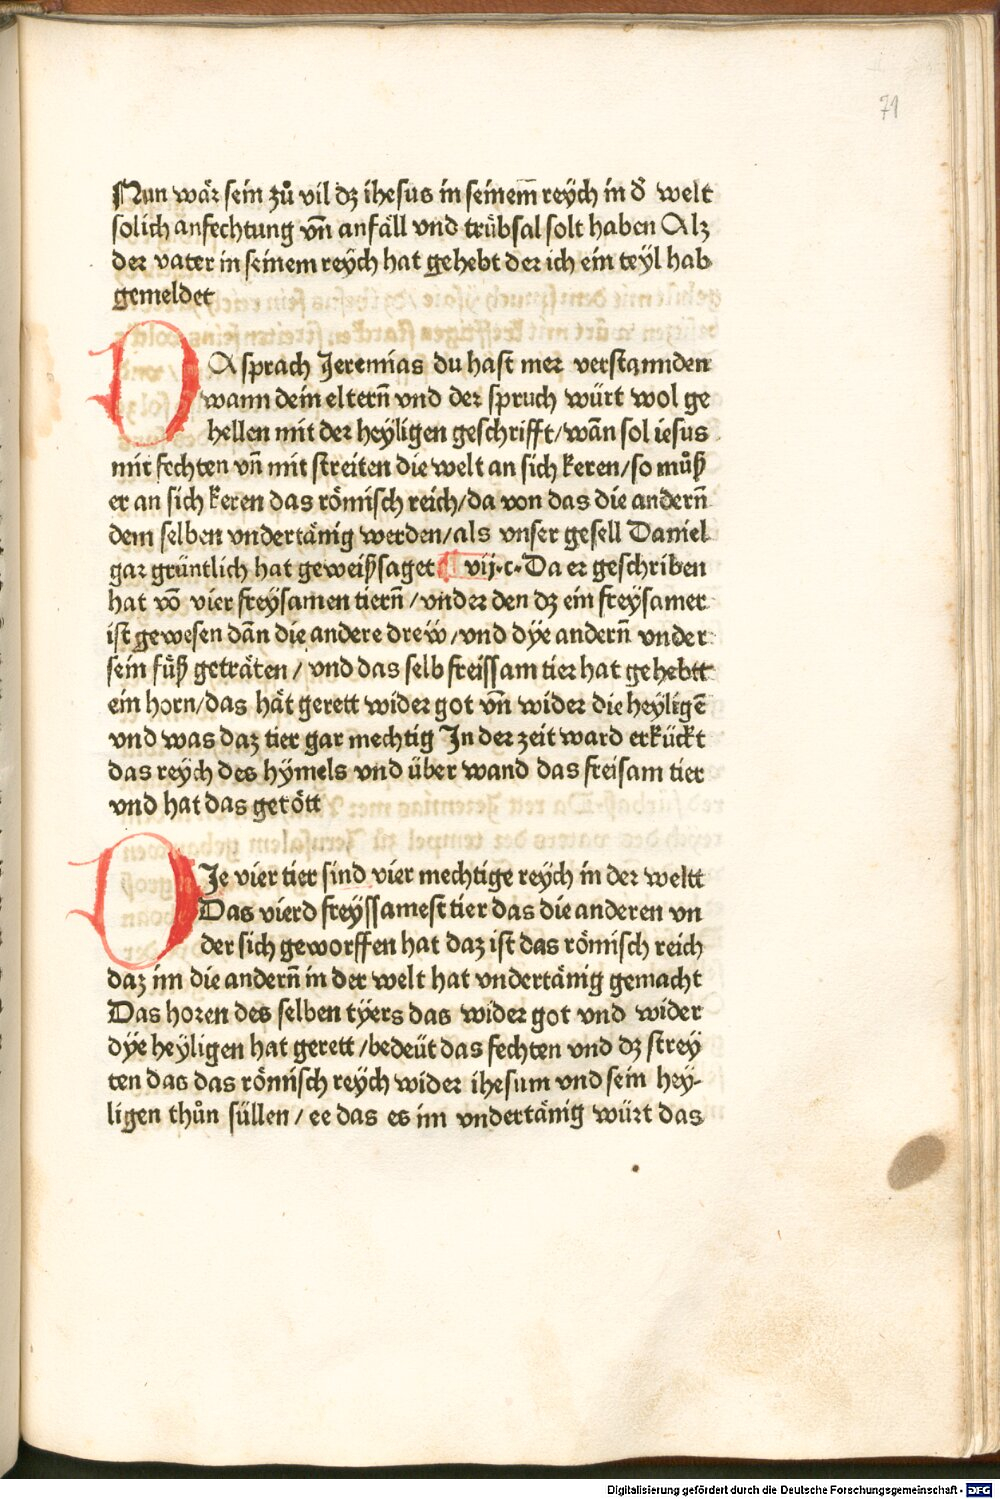 71
Nun wär sein zů vil dz ihesus in seinem̄ reÿch in d̕ welt
solich anfechtung vn̄ anfäll vnd trübsal solt haben Alz
der vater in seinem reÿch hat gehebt der ich ein teÿl hab
gemeldet
DA sprach Jeremias du hast mer verstannden
wann dein eltern̄ vnd der spruch würt wol ge
hellen mit der heÿligen geschrifft/wān sol iesus
mit fechten vn̄ mit streiten die welt an sich keren/so můß
er an sich keren das römisch reich/da von das die andern̄
dem selben vndertänig werden/als vnser gesell Daniel
gar grüntlich hat geweißsaget ¶ vij.c. Da er geschriben
hat vō vier freÿsamen tiern̄/vnder den dz ein freÿsamer
ist gewesen dān die andere dreẅ/vnd dÿe andern̄ vnder
sein füß geträten/ vnd das selb freissam tier hat gehebtt
ein horn/das hät gerett wider got vn̄ wider die heÿligē
vnd was daz tier gar mechtig In der zeit ward erkückt
das reÿch des hÿmels vnd über wand das freisam tier
vnd hat das getött
DJe vier tier sind vier mechtige reÿch in der weltt
Das vierd freÿssamest tier das die anderen vn
der sich geworffen hat daz ist das römisch reich
daz im die andern̄ in der welt hat vndertänig gemacht
Das horen des selben tÿers das wider got vnd wider
dÿe heÿligen hat gerett/bedeüt das fechten vnd dz streÿ
ten das das römisch reÿch wider ihesum vnd sein heÿ-
ligen thůn süllen/ ee das es im vndertänig würt das
Digitalisierung gefördert durch die Deutsche Forschungsgemeinschaft - DFG